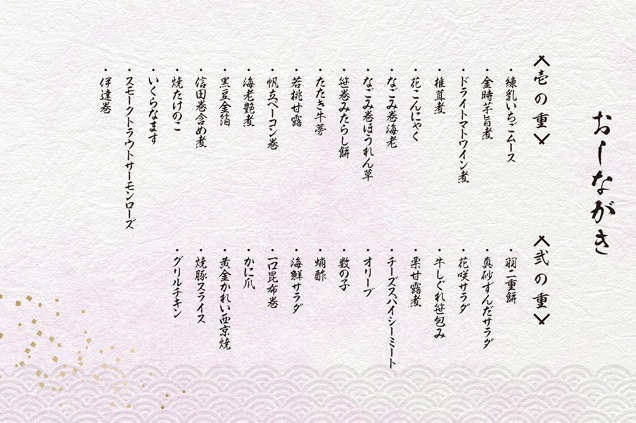 おしながき
壱の重
・練乳いちごムース
・金時芋旨煮
・ドライトマトワイン煮
・椎茸煮
・花こんにゃく
・なごみ巻海老
・なごみ巻ほうれん草
・笹巻みたらし餅
・たたき牛蒡
・若桃甘露
・帆立ベーコン巻
・海老艶煮
・黒豆金箔
・信田巻含め煮
・焼たけのこ
・いくらなます
・スモークトラウトサーモンローズ
・伊達巻
弐の重
・羽二重餅
・真砂ずんだサラダ
・花咲サラダ
・牛しぐれ笹包み
・栗甘露煮
・チーズスパイシーミート
・オリーブ
・数の子
・蛸酢
・海鮮サラダ
・一口昆布巻
・かに爪
・黄金かれい西京焼
・焼豚スライス
・グリルチキン